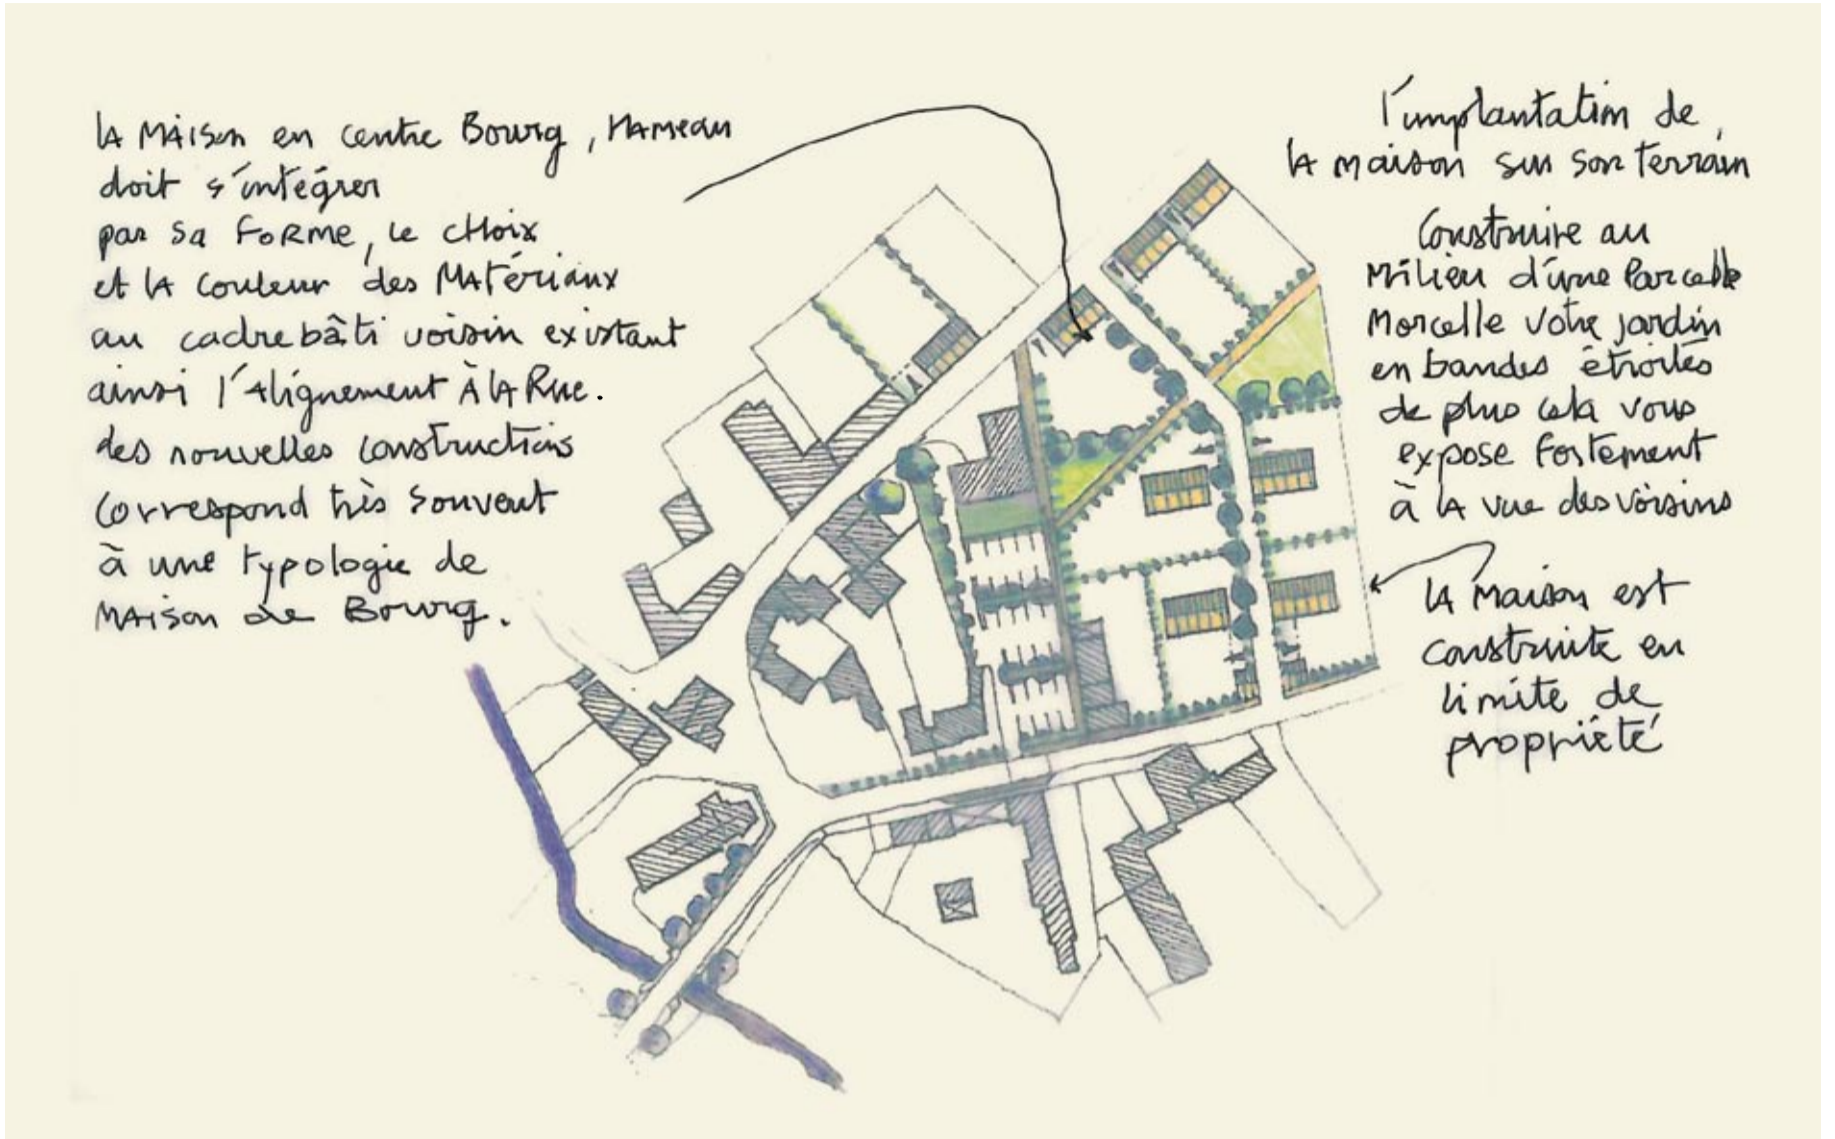 la Maison en centre Bourg, Hameau
doit s'intégrer
par sa FORME, le choix
et la couleur des Matériaux
au cadre bâti voisin existant
ainsi l'Alignement À la Rue.
des nouvelles constructions
correspond très souvent
à une typologie de
Maison de Bourg.
l'implantation de
la maison sur son terrain
Construire au
Milieu d'une Parcelle
Morcelle votre jardin
en bandes étroites
de plus cela vous
expose fortement
à la vue des voisins
la maison est
construite en
limite de
propriété